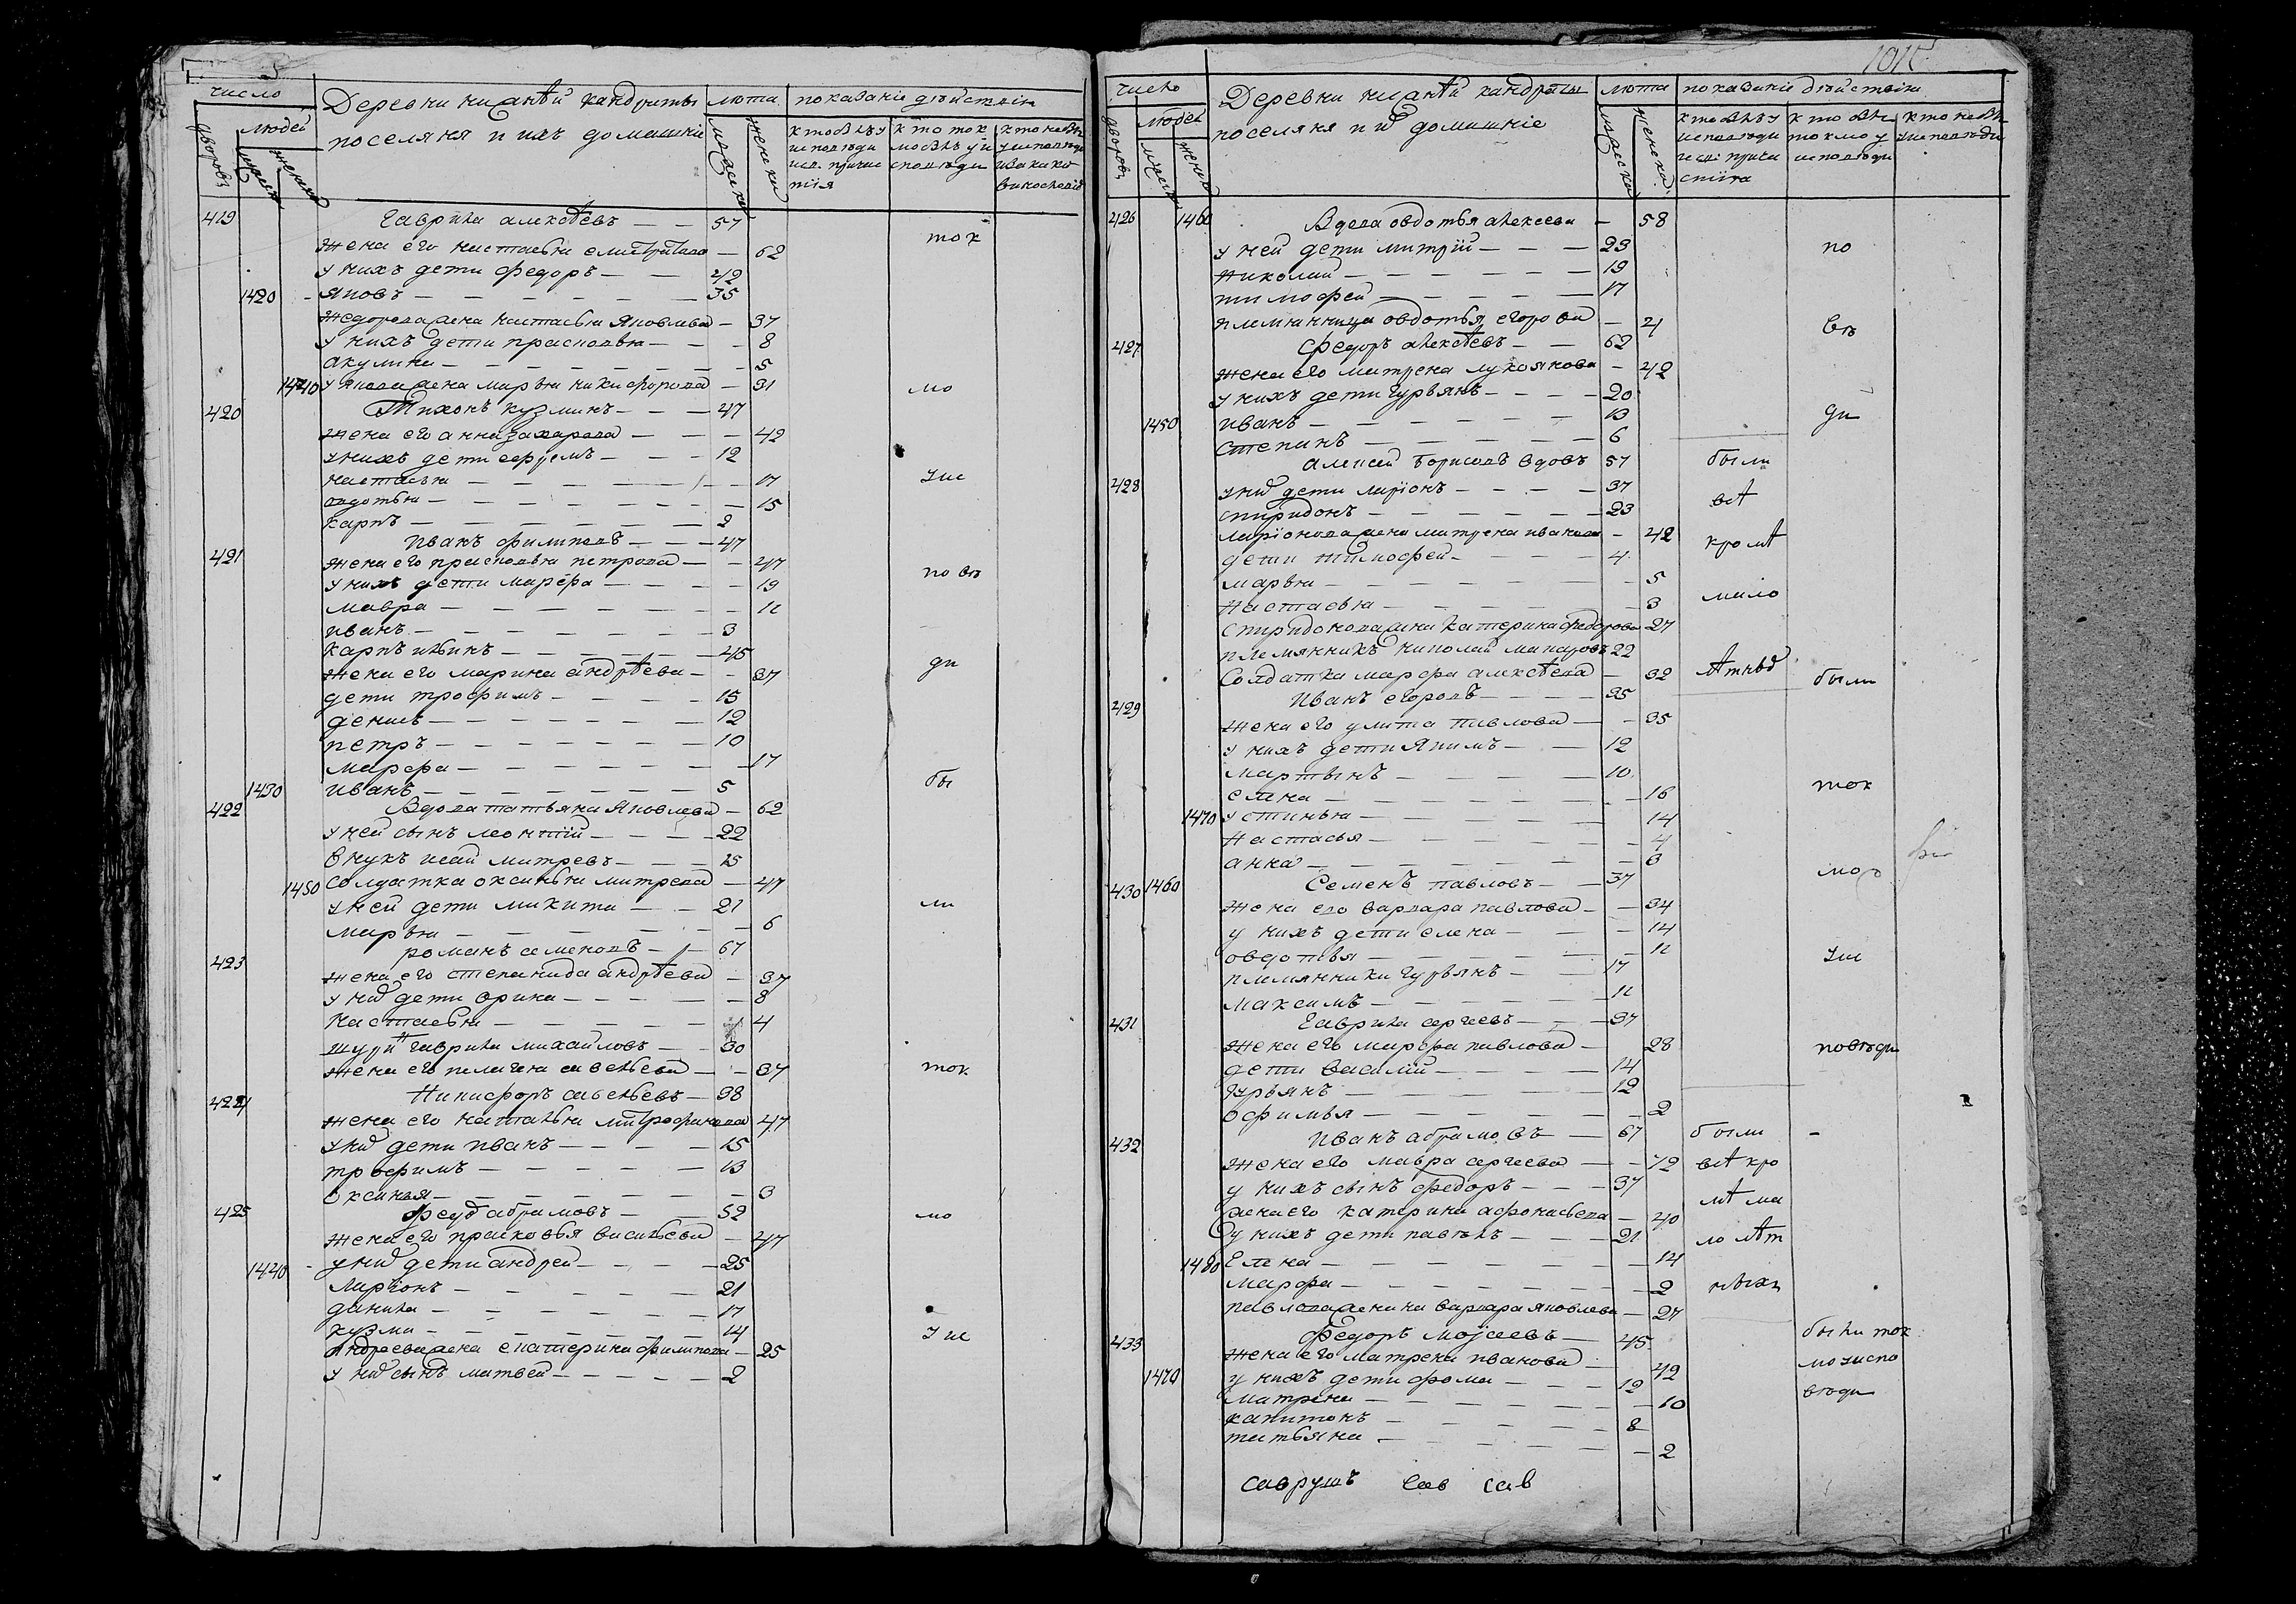 число
людей
дворовъ
мужеск
женск
Деревни кандраты
поселяня и ихъ домашнiе
лѣта
мужеска
женска
показанiе дѣйствiи
кто былъ у исповѣди и св. причастiя
кто ток мо былъ у исповѣди
кто не былъ у исповѣди
419 Гаврила алексѣевъ — — 57
жена его настасья — 62
у нихъ дети федоръ — — 42
1420 яковъ — — — — — — 35
жена настасья яковлева — 37
у нихъ дети прасковья — — — 8
акулина — — — — — — 5
жена марья никифорова — 31
420 Тихонъ кузминъ — — — 47
жена его анна захарова — — — 42
у нихъ дети ефремъ — — — 12
настасья — — — — — 17
овдотья — — — — — — 15
карпъ — — — — — — 2
421 иванъ филиповъ — — — 47
жена его прасковья петрова — — 47
у нихъ дети марфа — — — — 19
мавра — — — — — — — 11
иванъ — — — — — — 3
карпъ ильинъ — — — — — 45
жена его марина андрѣева — — 37
дети трофимъ — — — — 15
денисъ — — — — — — 12
петръ — — — — — — 10
марфа — — — — — — — 17
1430 иванъ — — — — — — 5
422 Вдова татьяна яковлева — 62
у ней сынъ леонтiй — — — — 22
внукъ исай митревъ — — — 15
1450 солдатка оксинья митрева — 47
у ней дети микита — — 21
марья — — — — — — 6
423 романъ семеновъ — — 67
жена его степанида андрѣева — 37
у них дети орина — — — — 8
настасья — — — — — 4
шуринъ гаврила михаиловъ — — 30
жена его пелагея савельева — — 37
424 Никифоръ савельевъ — 38
жена его наталья митрофанова 47
у них дети иванъ — — — — 15
трофимъ — — — — — 13
оксинья — — — — — — 3
425 федоръ абрамовъ — — 52
жена его прасковья васильева — 47
1440 у них дети андрей — — — — 25
ларiонъ — — — — — 21
данила — — — — — 17
кузма — — — — — 14
андреева жена екатерина филипова — 25
у них сынъ матвей — — — — — 2
ток
мо
у ис
повѣ
ди
бы
ли
ток
мо
у ис
1015
число
людей
дворовъ
мужеск
женск
Деревни кандраты
поселяня и их домашнiе
лѣта
мужеска
женска
показанiе дѣйствiи
кто былъ у исповѣди и св. причастiя
кто былъ токмо у исповѣди
кто не былъ у исповѣди
426 1460 Вдова овдотья алексеева — 58
у ней дети митрiй — — — 23
николай — — — — — — 19
тимофей — — — — — 17
племянница овдотья егорова — 21
427 федоръ алексѣевъ — — 62
жена его матрена лукоянова — 42
у нихъ дети гурьянъ — — — — 20
1450 иванъ — — — — — — 13
степанъ — — — — — 6
428 алексей борисовъ вдовъ 57
у них дети ларiонъ — — — — 37
спиридонъ — — — — — — 23
ларiонова жена матрена иванова — 42
дети тимофей — — — — 4
марья — — — — — — 5
настасья — — — — — — 3
спиридонова жена катерина федорова 27
племянникъ николай макаровъ 22
солдатка марфа алексѣева — 32
429 Иванъ егоровъ — — — — 35
жена его улита павлова — — 35
у нихъ дети якимъ — — 12
мартынъ — — — — 10
елена — — — — — — 16
1470 устинья — — — — — — 14
настасья — — — — — — 4
анна — — — — — — — 3
430 1460 Семенъ павловъ — — 37
жена его варвара павлова — — 34
у нихъ дети елена — — — 14
овдотья — — — — — — 11
племянники гурьянъ — — — 17
максимъ — — — — — — 11
431 Гаврила сергеевъ — — — 37
жена его марфа павлова — 28
дети василiй — — — — — 14
гурьянъ — — — — — 12
офимья — — — — — — 2
432 иванъ абрамовъ — 67
жена его мавра сергеева — — 72
у нихъ сынъ федоръ — — — 37
жена его катерина афонасьева — 40
у нихъ дети павелъ — — — 21
1480 Елена — — — — — — — 14
марфа — — — — — — — 2
павлова жена варвара яковлева — 27
433 Федоръ мојсеевъ — 45
жена его матрена иванова — 42
1470 у нихъ дети фома — — — — 12
матрена — — — — — — — 10
капитонъ — — — — — 8
татьяна — — — — — — 2
по
вѣ
ди
были
всѣ
кромѣ
мало
лѣтных
были
ток
мо
у ис
повѣди
были
всѣ кро
мѣ ма
ло лѣт
ныхъ
были ток
мо у испо
вѣди
саврушъ сав сав